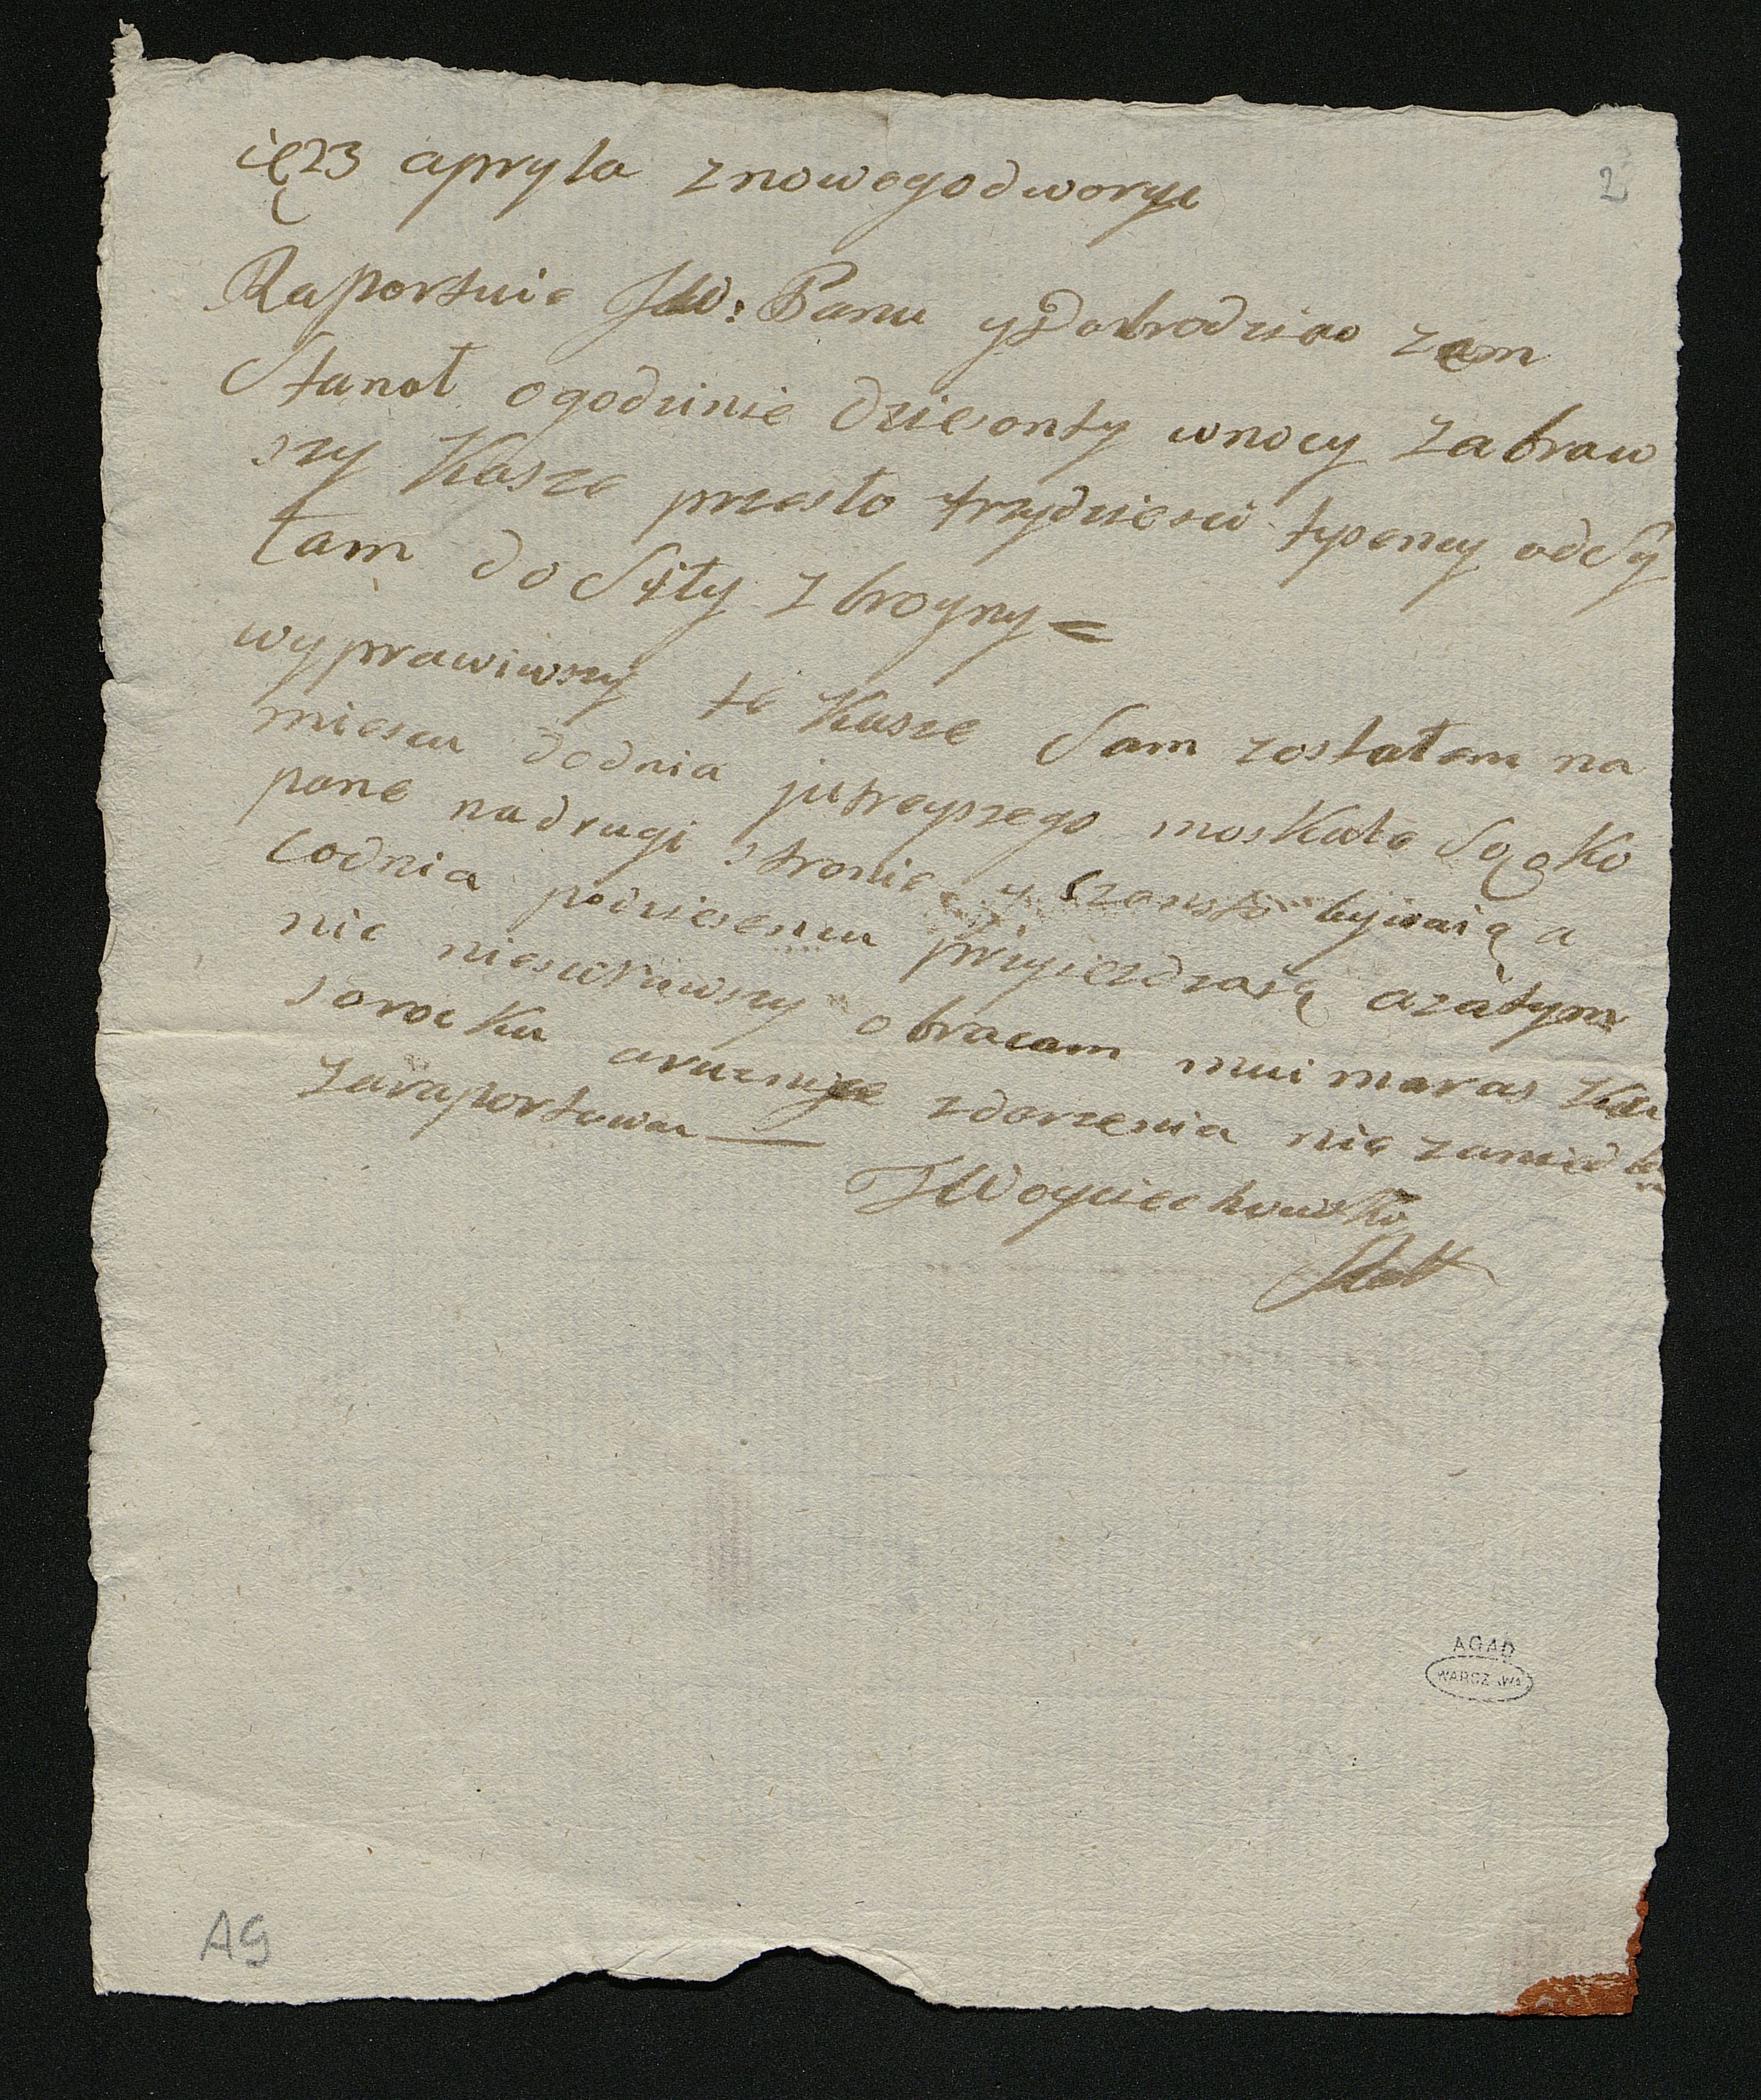 ię23 apryla znowegodworu
2
Raportuie JW: Panu y Dobrodzieo zem
Stanoł ogodzinie dziesonty wnocy zabraw
szy Kasze przesło trzydziesci tysency odsy
łam do Siły zbroyny =
wyprawiwszy te Kasze Sam zostałem na
miescu dodnia jutreyszego moskale Są oko
pane nadrugi stronie y czensto bywaią a
codnia podziesencu przyiezdzaią azatym
nic nieswruwszy obracam mui maras ku
sorocku
zdorzenia nie zanied
zaraportowac —
JWoyciechowski
AGAD
WARSZAWA
AG